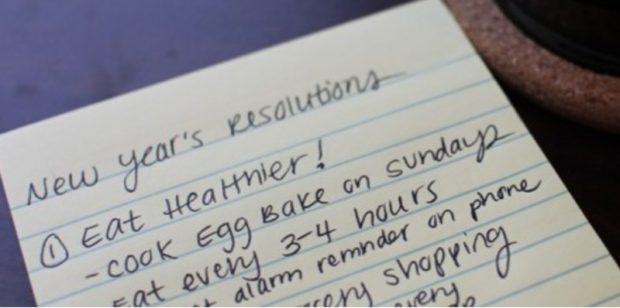 New year's resolutions
① Eat Healthier!
- cook Egg Bake on sundays
Eat every 3-4 hours
alarm remnder on phone
shopping
every